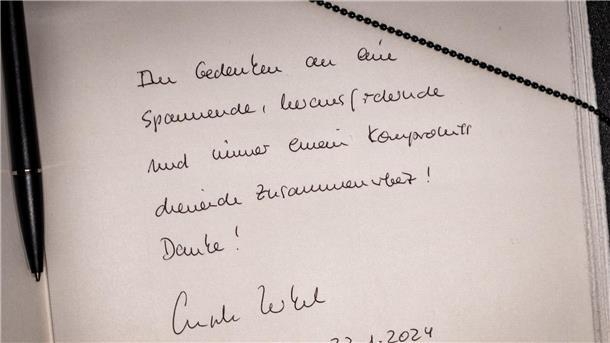 In Gedenken an eine
spannende, herausfordernde
und immer einem Kompromiss
dienende Zusammenarbeit!
Danke!
Angela Merkel
22.1.2024